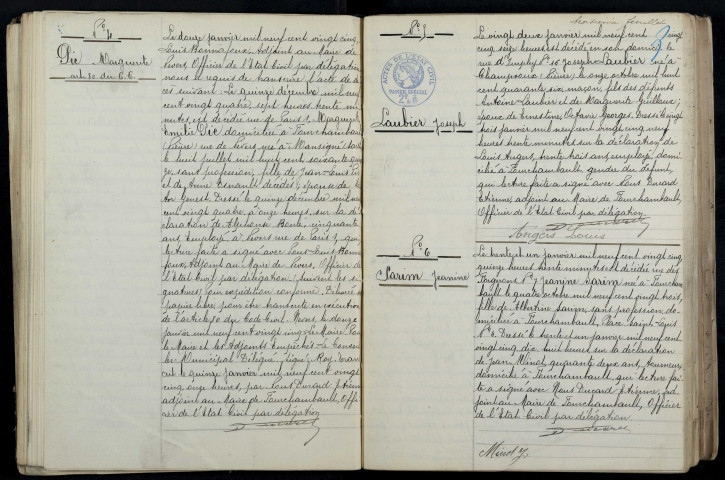 N° 4
Pié Marguerite
art 80 du C.C.
Le douze janvier mil neuf cent vingt cinq
Louis Bonnafoux, Adjoint au Maire de
Nevers, Officier de l'Etat Civil par délégation
nous a requis de transcrire l'acte de dé
cès suivant: Le quinze décembre mil neuf
cent vingt quatre, sept heures trente mi
nutes, est décédée rue de Paris, Marguerite
Emilie Pié domiciliée à Fourchambault
(Nièvre) rue de Nevers née à
le huit juillet mil neuf cent soixante
ze, sans profession, fille de Jean-Louis Pié
et de Anne Esnault décédés, épouse de
Dressé le quinze décembre mil neuf
cent vingt quatre, à onze heures, sur la dé
claration de Alphonse Bonte, cinquante
ans, Employé à Nevers rue de Paris, qui
lecture faite a signé avec Nous Louis Bonna
foux, Adjoint au Maire de Nevers, Officier de
l'Etat Civil par délégation, (suivent les si
gnatures) Pour expédition conforme, Délivré sur
papier libre pour être transcrite en exécution
de l'article 80 du Code Civil. Nevers, le douze
janvier mil neuf cent vingt cinq. Le Maire Pour
le Maire et les Adjoints Empêchés, Le Conseil
ler Municipal Délégué, signé: Roy. Trans
crit le quinze janvier mil neuf cent vingt
cinq, onze heures, par Nous Ducard Etienne,
adjoint au Maire de Fourchambault, Offici
er de l'Etat Civil par délégation
N° 5
Laubier Joseph
ACTES DE L'ETAT CIVIL
PAPIER SPECIAL
Le vingt deux janvier mil neuf cent vingt
cinq seize heures est décédé en son domicile
rue 16 Joseph Laubier né à
Champvoux (Nièvre) le onze octobre mil huit
cent quarante six, maçon, fils des défunts
Antoine Laubier et de Marguerite Guillaume;
époux de Ernestine, Octavie Georges. Dressé le vingt
trois janvier mil neuf cent vingt cinq neuf
heures trente minutes sur la déclaration de
Louis Angers, trente huit ans, employé, domi
cilié à Fourchambault, gendre du défunt,
qui lecture faite a signé avec Nous Ducard
Etienne, adjoint au Maire de Fourchambault,
Officier de l'Etat Civil par délégation.
Angers Louis
N° 6
Sarim Jeanine
Le trente et un janvier mil neuf cent vingt cinq
quinze heures trente minutes est décédée rue des
N° 7 Jeanine Sarim née à Fourcham
bault le quatre octobre mil neuf cent vingt trois,
fille de Albertine Sarim, sans profession, do
miciliée à Fourchambault, Place Saint-Louis
N° 3. Dressé le trente et un janvier mil neuf cent
vingt cinq, dix huit heures sur la déclaration
de Jean Minot, quarante deux ans,
domicilié à Fourchambault, qui lecture fai
te a signé avec Nous Ducard Etienne, ad
joint au Maire de Fourchambault, Officier
de l'Etat Civil par délégation
Minot J.